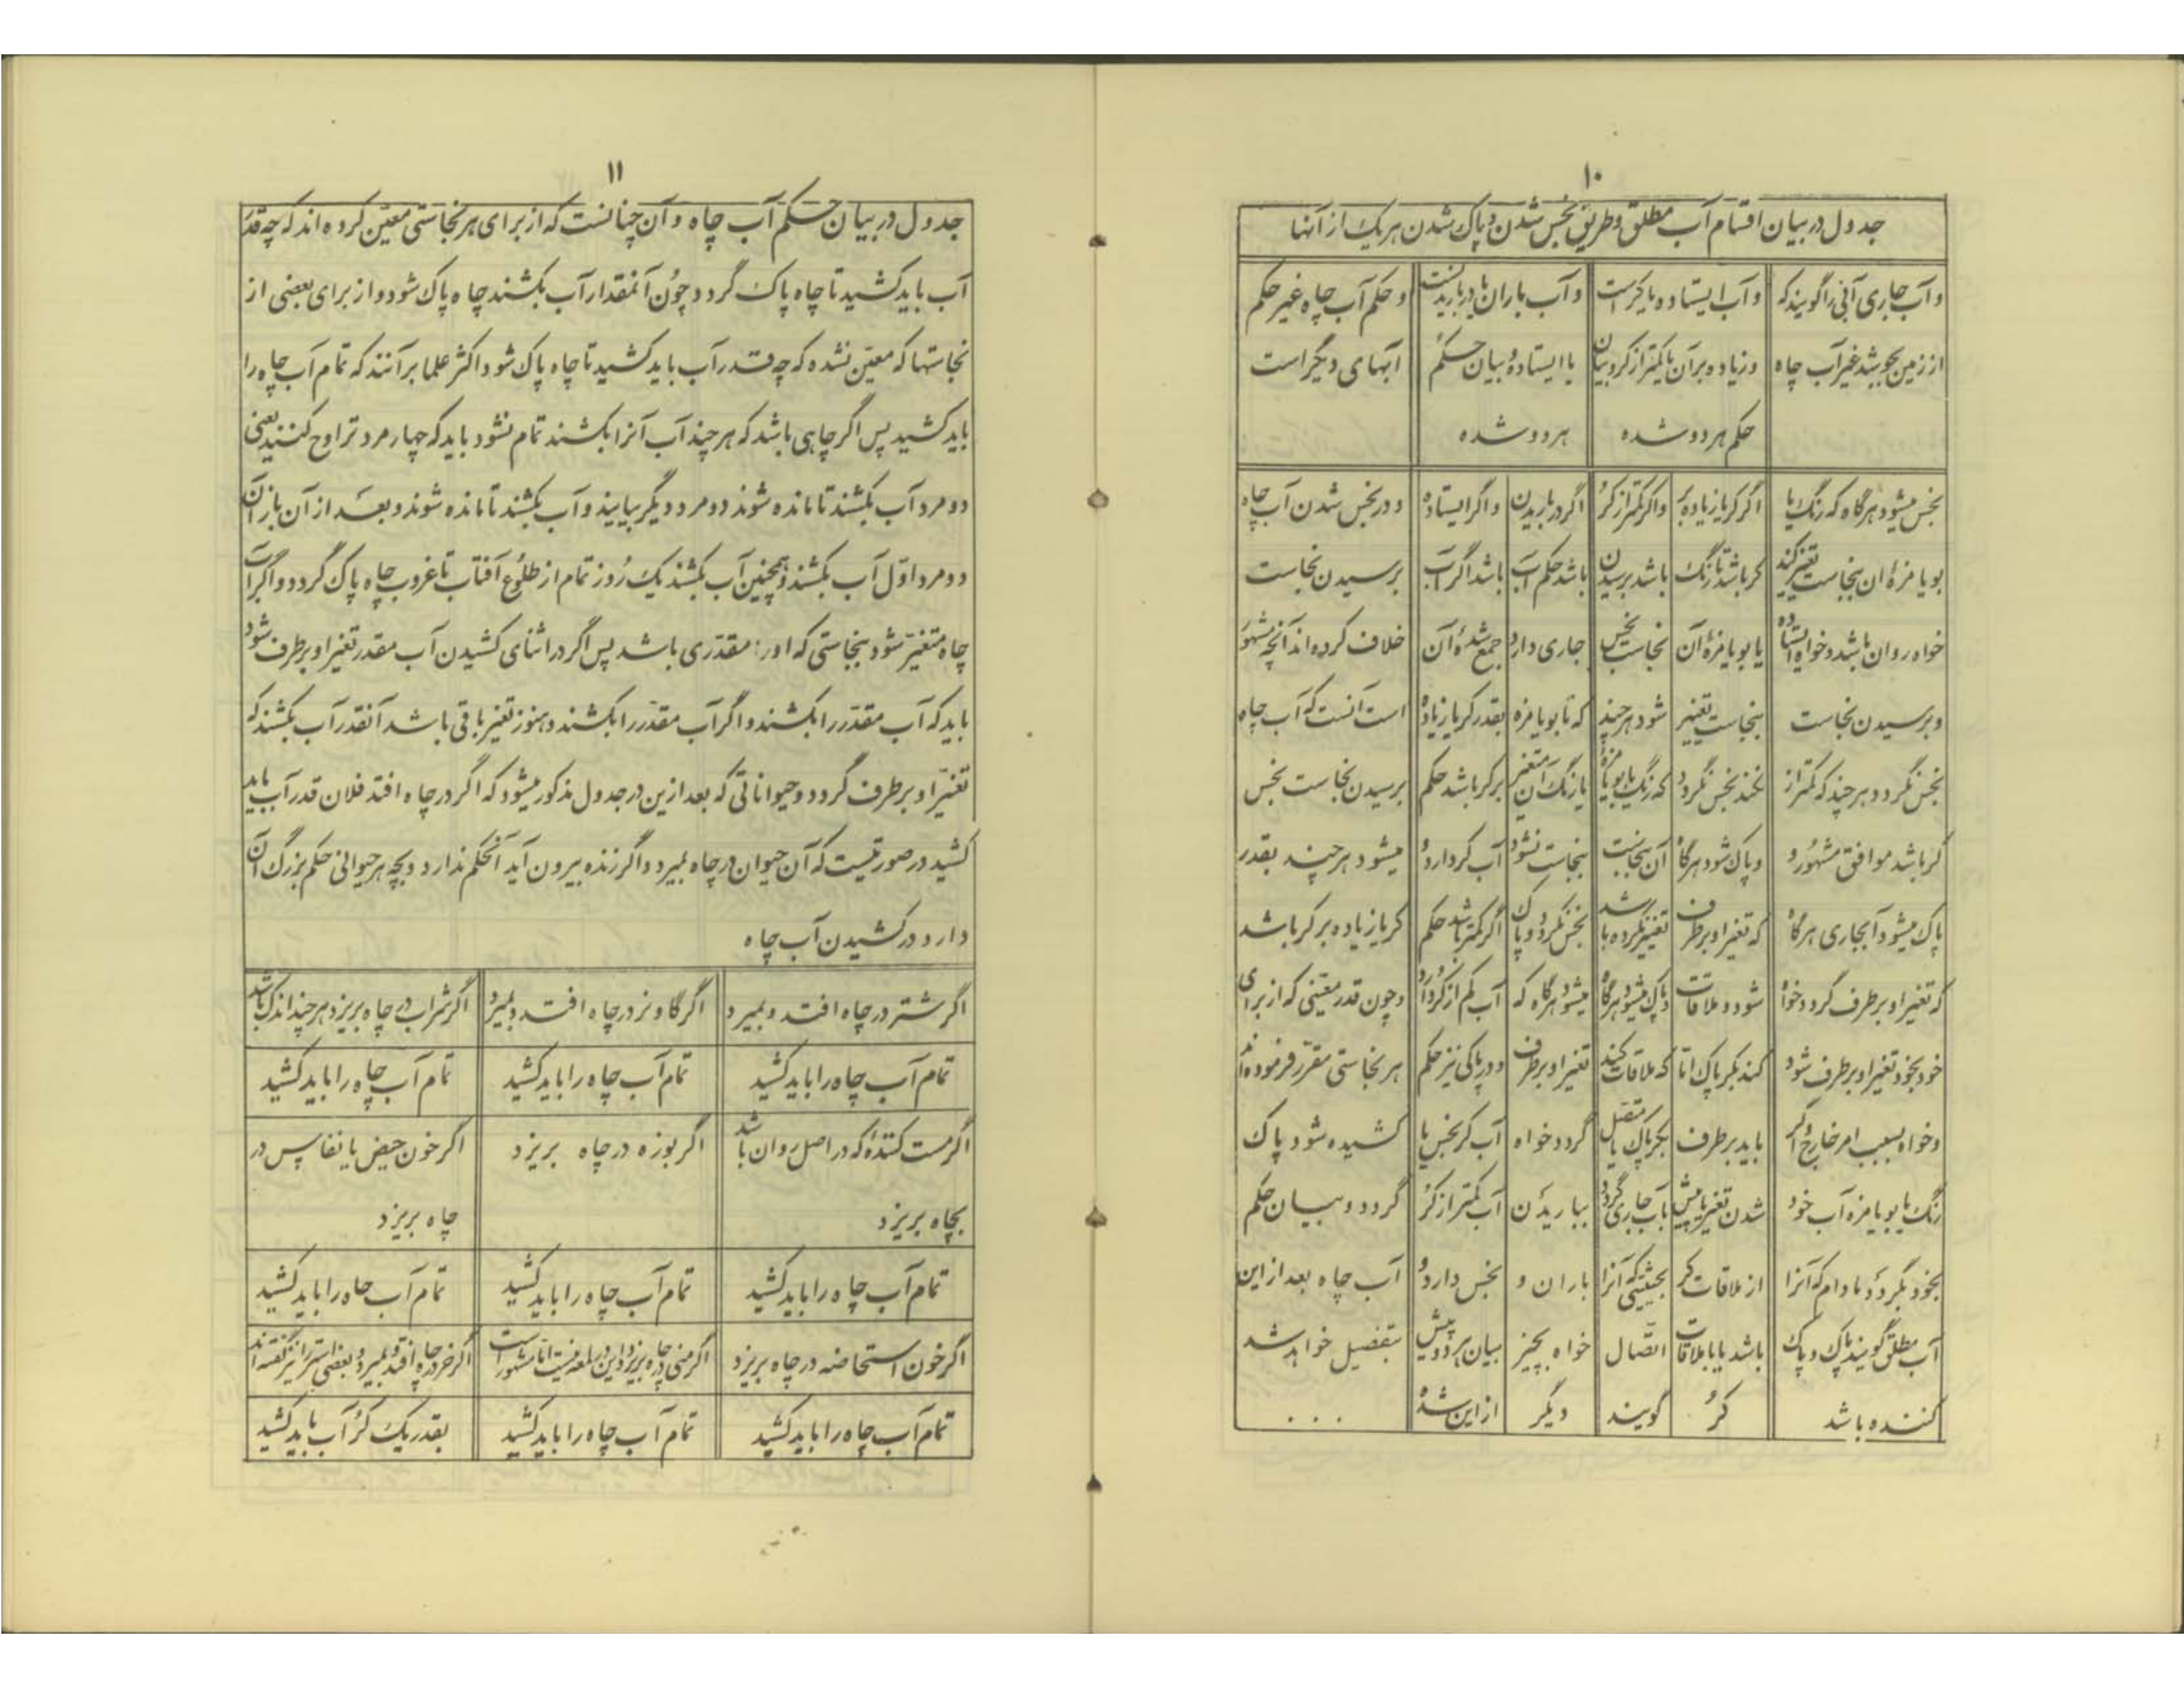 ۱۰
جدول در بیان اقسام آب مطلق و طریق نجس شدن و پاک شدن هر یک از آنها
و آب جاری آبی را گویند که
از زمین بجوشد غیر آب چاه
و آب ایستاده یا کر است
و زیاده بر آن یا کمتر از کر و بیان
حکم هر دو شده
و آب باران یا در باریدنست
یا ایستاده و بیان حکم
هر دو شده
و حکم آب چاه غیر حکم
آبهای دیگر است
نجس میشود هرگاه که رنگ یا
بو یا مزهٔ ان بنجاست تغییر کند
خواه روان باشد و خواه ایستاده
و برسیدن نجاست
نجس نگردد هر چند که کمتر از
کر باشد موافق مشهور و
پاک میشود آبجاری هرگاه
که تغیر او برطرف گردد خواه
خود بخود تغیر او برطرف شود
و خواه بسبب امر خارج اگر
رنگ یا بو یا مزه آب خود
بخود بگردد مادام که آنرا
آب مطلق گویند پاک و پاک
کننده باشد
اگر کر یا زیاده بر
کر باشد تا رنگ
یا بو یا مزهٔ آن
بنجاست تغییر
نکند نجس نگردد
و پاک شود هرگاه
که تغیر او برطرف
شود و ملاقات
کند بکر پاک اما
باید برطرف
شدن تغیر یا پیش
از ملاقات کر
باشد یا با ملاقات
کر
و اگر کمتر از کر
باشد برسیدن
نجاست نجس
شود هر چند
که رنگ یا بو یا مزه
آن بنجاست
تغییر نکرده باشد
و پاک میشود هرگاه
که ملاقات کند
بکر پاک یا متصل
بآب جاری گردد
بحیثیتی که آنرا
اتصال
گویند
اگر در باریدن
باشد حکم آب
جاری دارد
که تا بو یا مزه
یا رنگ آن متغیر
بنجاست نشود
نجس نگردد و پاک
میشود هرگاه که
تغیر او برطرف
گردد خواه
بباریدن
باران و
خواه بچیز
دیگر
و اگر ایستاده
باشد اگر آب
جمع شدهٔ آن
بقدر کر یا زیاده
بر کر باشد حکم
آب کر دارد و
اگر کمتر باشد حکم
آب کم از کر دارد
و در پاکی نیز حکم
آب کر نجس یا
آب کمتر از کر
نجس دارد و
بیان هر دو پیش
از این شده
و در نجس شدن آب چاه
برسیدن نجاست
خلاف کرده اند آنچه مشهور
است آنست که آب چاه
برسیدن نجاست نجس
میشود هر چند بقدر
کر یا زیاده بر کر باشد
و چون قدر معینی که از برای
هر نجاستی مقرر فرموده اند
کشیده شود پاک
گردد و بیان حکم
آب چاه بعد از این
بتفصیل خواهد شد
. . .
۱۱
جدول در بیان حکم آب چاه و آن چنانست که از برای هر نجاستی معین کرده اند که چه قدر
آب باید کشید تا چاه پاک گردد چون آنمقدار آب بکشند چاه پاک شود و از برای بعضی از
نجاستها که معین نشده که چه قدر آب باید کشید تا چاه پاک شود اکثر علما برآنند که تمام آب چاه را
باید کشید پس اگر چاهی باشد که هر چند آب آنرا بکشند تمام نشود باید که چهار مرد تراوح کنند یعنی
دو مرد آب بکشند تا مانده شوند دو مرد دیگر بیایند و آب بکشند تا مانده شوند و بعد از آن باز آن
دو مرد اول آب بکشند و همچنین آب بکشند یک روز تمام از طلوع آفتاب تا غروب چاه پاک گردد و اگر آب
چاه متغیر شود بنجاستی که او را مقدری باشد پس اگر در اثنای کشیدن آب مقدر تغیر او برطرف شود
باید که آب مقدر را بکشند و اگر آب مقدر را بکشند و هنوز تغیر باقی باشد آنقدر آب بکشند که
تغیر او برطرف گردد و حیواناتی که بعد ازین در جدول مذکور میشود که اگر در چاه افتد فلان قدر آب باید
کشید در صورتیست که آن حیوان در چاه بمیرد و اگر زنده بیرون آید آنحکم ندارد و بچه هر حیوانی حکم بزرگ آن
دارد در کشیدن آب چاه
اگر شتر در چاه افتد و بمیرد
اگر گاو نر در چاه افتد و بمیرد
اگر شراب در چاه بریزد هر چند اندک باشد
تمام آب چاه را باید کشید
تمام آب چاه را باید کشید
تمام آب چاه را باید کشید
اگر مست کنندهٔ که در اصل روان باشد
بچاه بریزد
اگر بوزه در چاه بریزد
اگر خون حیض یا نفاس در
چاه بریزد
تمام آب چاه را باید کشید
تمام آب چاه را باید کشید
تمام آب چاه را باید کشید
اگر خون استحاضه در چاه بریزد
اگر منی در چاه بریزد و این در لمعه نیست اما مشهور است
اگر خر در چاه افتد و بمیرد و بعضی استر را نیز گفته اند
تمام آب چاه را باید کشید
تمام آب چاه را باید کشید
بقدر یک کر آب باید کشید